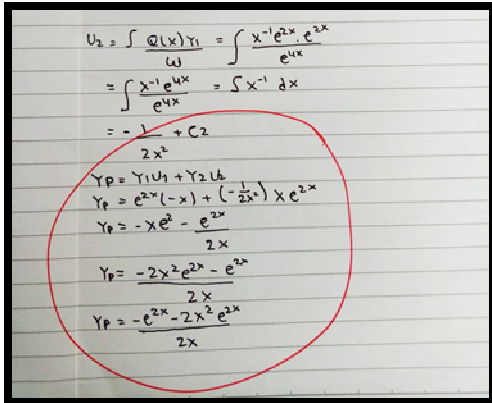 U₂ = ∫ Q(x)Y₁ / ω = ∫ x⁻¹e²ˣ · e²ˣ / e⁴ˣ
= ∫ x⁻¹ e⁴ˣ / e⁴ˣ = ∫ x⁻¹ dx
= - 1 / 2x² + C2
Yp = Y₁U₁ + Y₂U₂
Yp = e²ˣ(-x) + (-1/2x²) x e²ˣ
Yp = -xe² - e²ˣ / 2x
Yp = -2x²e²ˣ - e²ˣ / 2x
Yp = -e²ˣ - 2x² e²ˣ / 2x